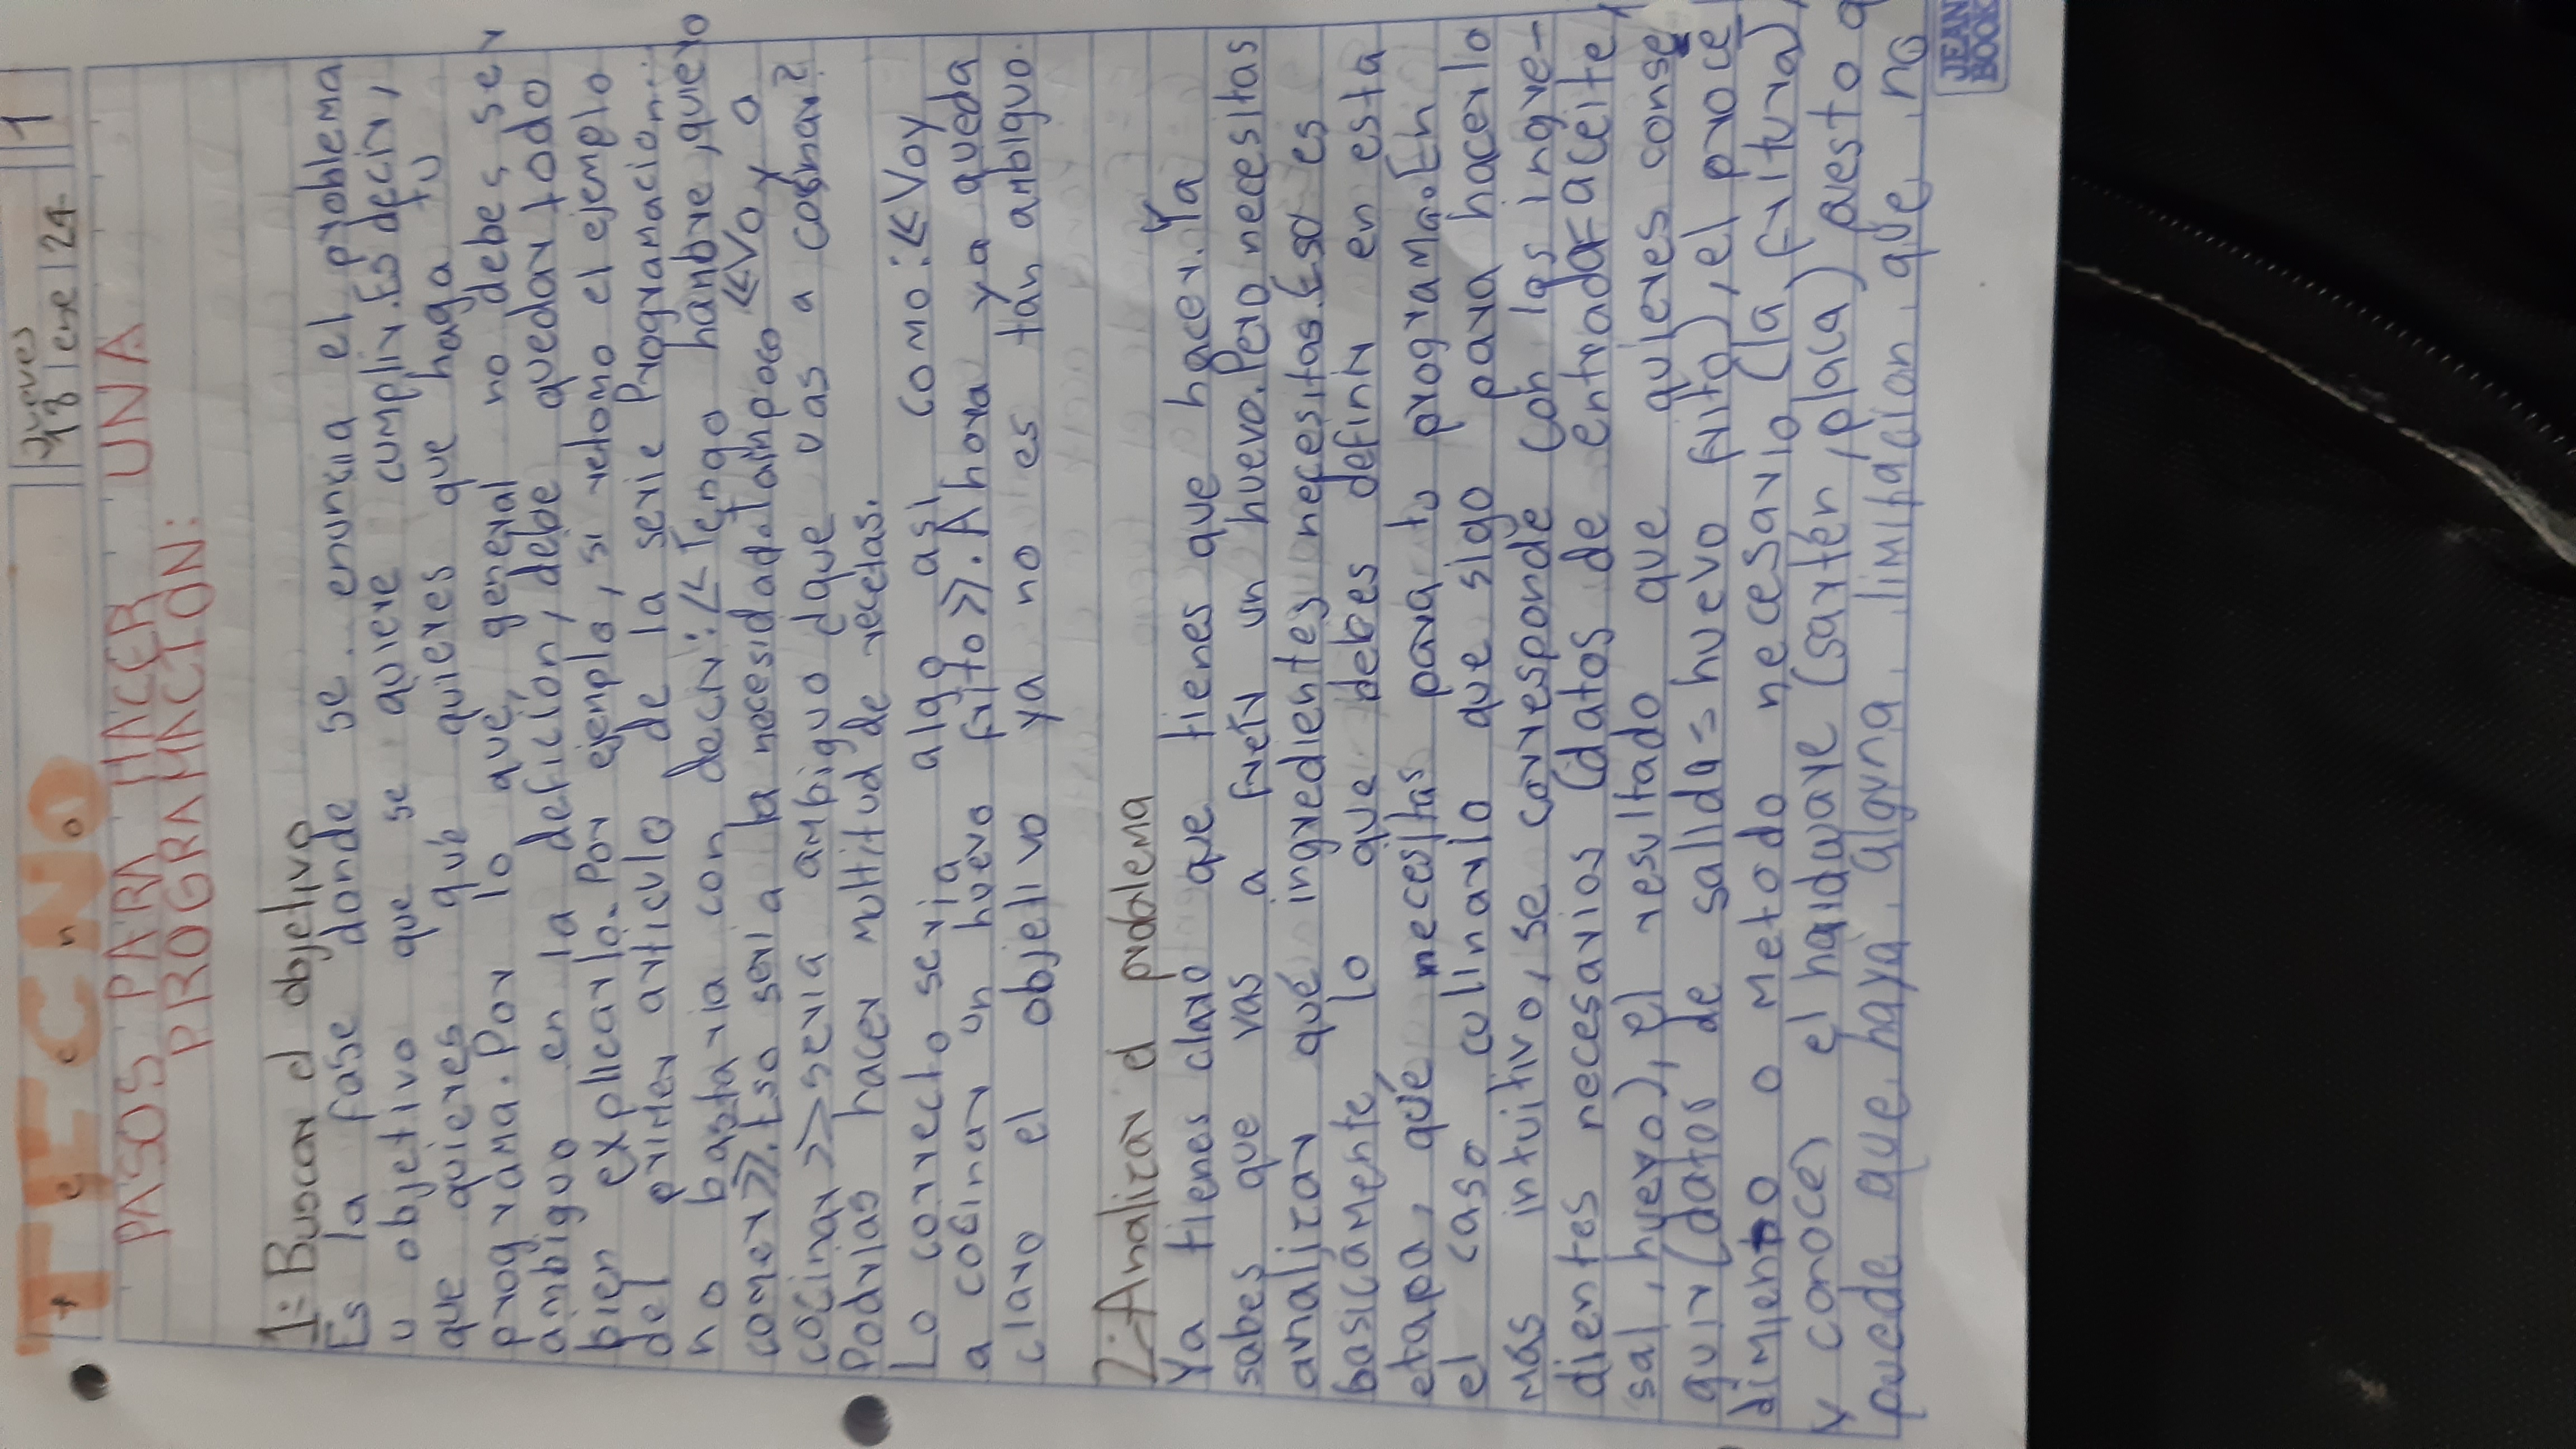 TECNO
T e c n o
Jueves
18 | ene | 24
1
PASOS PARA HACER UNA
PROGRAMACION:
1= Buscar el objetivo
Es la fase donde se enuncia el problema
u objetivo que se quiere cumplir. Es decir,
que quieres qué quieres que haga tu
programa. Por lo que, general no debes ser
ambiguo en la defición, debe quedar todo
bien explicarlo. Por ejemplo, si retomo el ejemplo
del primer artículo de la serie Programacion:
no bastaria con decir: «Tengo hambre, quiero
comer». Eso sería la necesidad. Tampoco «Voy a
cocinar» seria ambiguo ¿que vas a cocinar?
Podrias hacer multitud de recetas.
Lo correcto seria algo asi como: «Voy
a cocinar un huevo frito». Ahora ya queda
claro el objetivo ya no es tan ambiguo.
2:-Analizar el problema
Ya tienes claro que tienes que hacer. Ya
sabes que vas a freír un huevo. Pero necesitas
analizar qué ingredientes necesitas. Eso es
basicámente, lo que debes definir en esta
etapa, qué necesitas para tu programa. En
el caso culinario que sigo para hacerlo
más intuitivo, se corresponde con los ingre-
dientes necesarios (datos de entrada= aceite,
sal, huevo), el resultado que quieres conse
guir (datos de salida= huevo frito), el proce
dimiento o metodo necesario (la fritura)
y conocer el hardware (sartén, placa) puesto q
puede que haya alguna limitacion que no
JEAN
BOOK